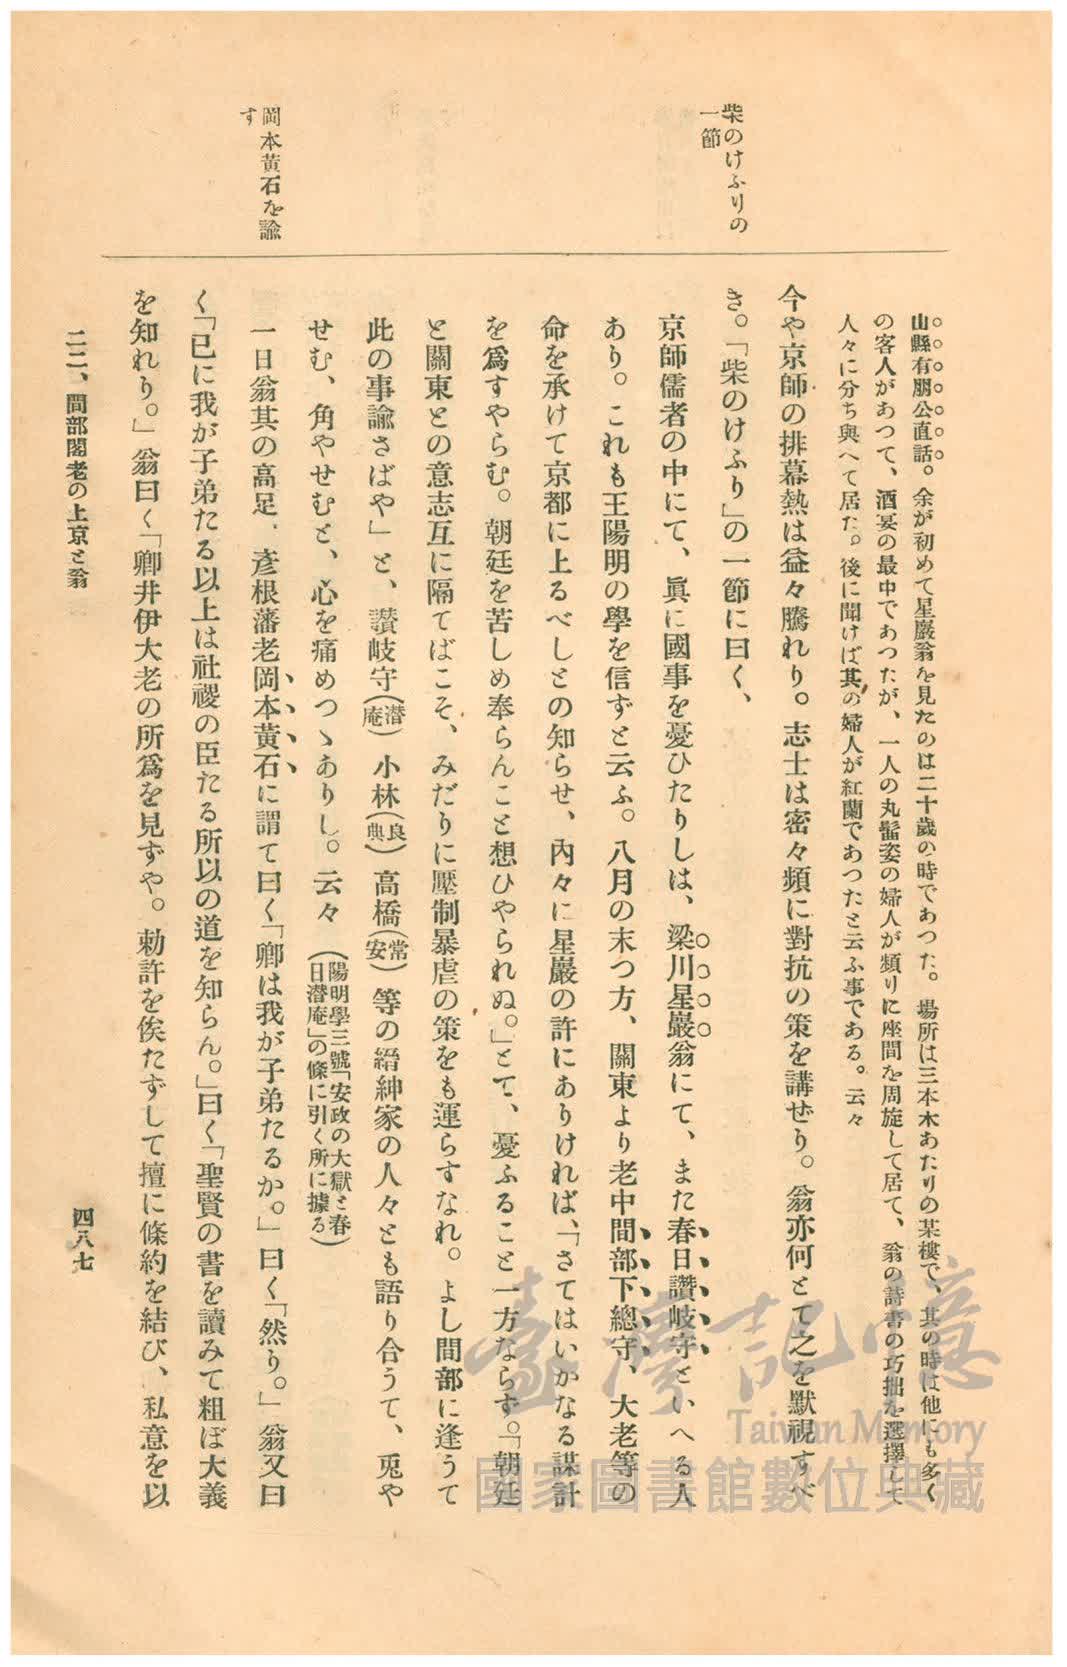 柴のけふりの
一節
岡本黄石を諭
す
山縣有朋公直話。余が初めて星巖翁を見たのは二十歳の時であつた。場所は三本木あたりの某樓で、其の時は他にも多く
の客人があつて、酒宴の最中であつたが、一人の丸髷姿の婦人が頻りに座間を周旋して居て、翁の詩書の巧拙を選擇して
人々に分ち與へて居た。後に聞けば其の婦人が紅蘭であつたと云ふ事である。云々
今や京師の排幕熱は益々騰れり。志士は密々頻に對抗の策を講ぜり。翁亦何とて之を默視すべ
き。「柴のけふり」の一節に曰く、
京師儒者の中にて、眞に國事を憂ひたりしは、梁川星巖翁にて、また春日讚岐守といへる人
あり。これも王陽明の學を信ずと云ふ。八月の末つ方、關東より老中間部下總守、大老等の
命を承けて京都に上るべしとの知らせ、内々に星巖の許にありければ、「さてはいかなる謀計
を爲すやらむ。朝廷を苦しめ奉らんこと想ひやられぬ。」とて、憂ふること一方ならず。「朝廷
と關東との意志互に隔てばこそ、みだりに壓制暴虐の策をも運らすなれ。よし間部に逢うて
此の事諭さばや」と、讃岐守(潜庵)小林(良典)高橋(常安)等の縉紳家の人々とも語り合うて、兎や
せむ、角やせむと、心を痛めつゝありし。云々(陽明學三號「安政の大獄と春日潜庵」の條に引く所に據る)
一日翁其の高足、彦根藩老岡本黄石に謂て曰く「卿は我が子弟たるか。」曰く「然り。」翁又曰
く「已に我が子弟たる以上は社稷の臣たる所以の道を知らん。」曰く「聖賢の書を讀みて粗ぼ大義
を知れり。」翁曰く「卿井伊大老の所爲を見ずや。勅許を俟たずして擅に條約を結び、私意を以
二二、間部閣老の上京と翁
四八七
臺灣記憶
Taiwan Memory
國家圖書館數位典藏